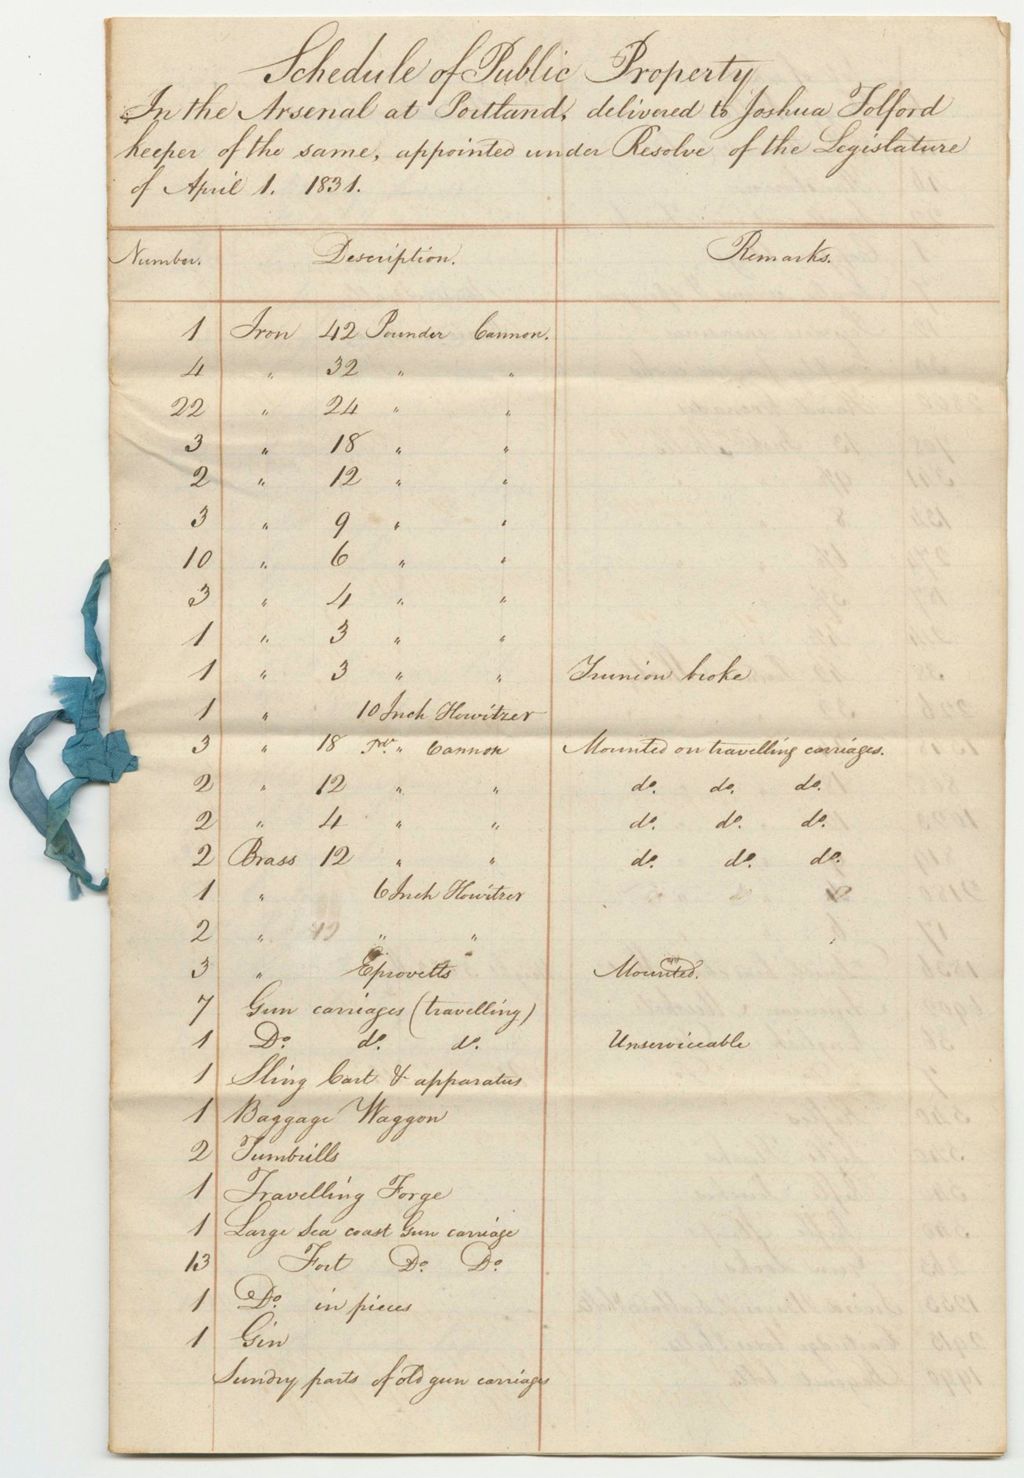 Schedule of Public Property
In the Arsenal at Portland, delivered to Joshua Tolford
keeper of the same, appointed under Resolve of the Legislature
of April 1. 1831.
Number. Description. Remarks.
1 Iron 42 Pounder Cannon.
4 " 32 " "
22 " 24 " "
3 " 18 " "
2 " 12 " "
3 " 9 " "
10 " 6 " "
3 " 4 " "
1 " 3 " "
1 " 3 " " Trunion broke
1 " 10 Inch Howitzer
3 " 18 Pr. " Cannon Mounted on travelling carriages.
2 " 12 " " do. do. do.
2 " 4 " " do. do. do.
2 Brass 12 " " do. do. do.
1 " 6 Inch Howitzer
2 " 12 " "
3 " Eprovetts Mounted.
7 Gun carriages (travelling)
1 Do. do. do. Unserviceable
1 Sling Cart & apparatus
1 Baggage Waggon
2 Tumbrills
1 Travelling Forge
1 Large Sea coast Gun carriage
13 Fort Do. Do.
1 Do. in pieces
1 Gin
Sundry parts of old gun carriages